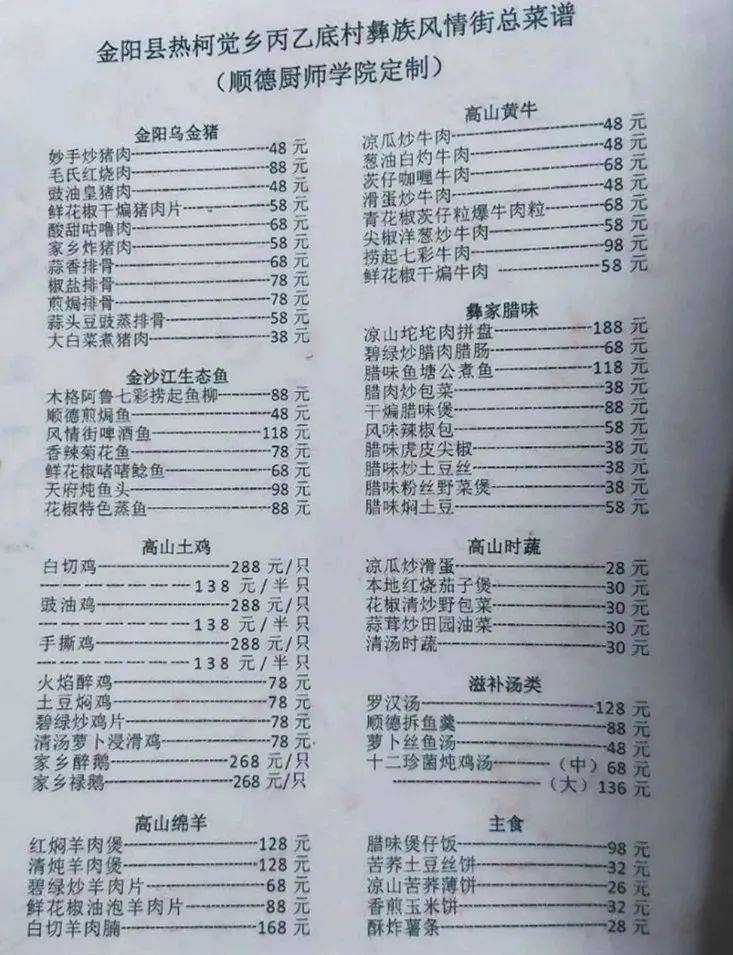 金阳县热柯觉乡丙乙底村彝族风情街总菜谱
（顺德厨师学院定制）
金阳乌金猪
妙手炒猪肉----------48 元
毛氏红烧肉----------88 元
豉油皇猪肉----------48 元
鲜花椒干煸猪肉片----------58 元
酸甜咕噜肉----------68 元
家乡炸猪肉----------58 元
蒜香排骨----------68 元
椒盐排骨----------78 元
煎焗排骨----------78 元
蒜头豆豉蒸排骨----------58 元
大白菜煮猪肉----------38 元
金沙江生态鱼
木格阿鲁七彩捞起鱼柳----------88 元
顺德煎焗鱼----------48 元
风情街啤酒鱼----------118 元
香辣菊花鱼----------78 元
鲜花椒啫啫鲶鱼----------68 元
天府炖鱼头----------98 元
花椒特色蒸鱼----------88 元
高山土鸡
白切鸡----------288 元/只
----------138 元/半只
豉油鸡----------288 元/只
----------138 元/半只
手撕鸡----------288 元/只
----------138 元/半只
火焰醉鸡----------78 元
土豆焖鸡----------78 元
碧绿炒鸡片----------78 元
清汤萝卜浸滑鸡----------78 元
家乡醉鹅----------268 元/只
家乡禄鹅----------268 元/只
高山绵羊
红焖羊肉煲----------128 元
清炖羊肉煲----------128 元
碧绿炒羊肉片----------68 元
鲜花椒油泡羊肉片----------88 元
白切羊肉腩----------168 元
高山黄牛
凉瓜炒牛肉----------48 元
葱油白灼牛肉----------48 元
茨仔咖喱牛肉----------68 元
滑蛋炒牛肉----------48 元
青花椒茨仔粒爆牛肉粒----------68 元
尖椒洋葱炒牛肉----------58 元
捞起七彩牛肉----------98 元
鲜花椒干煸牛肉 ----------58 元
彝家腊味
凉山坨坨肉拼盘----------188 元
碧绿炒腊肉腊肠----------68 元
腊味鱼塘公煮鱼----------118 元
腊肉炒包菜----------38 元
干煸腊味煲----------88 元
风味辣椒包----------58 元
腊味虎皮尖椒----------38 元
腊味炒土豆丝----------38 元
腊味粉丝野菜煲----------38 元
腊味焖土豆----------58 元
高山时蔬
凉瓜炒滑蛋----------28 元
本地红烧茄子煲----------30 元
花椒清炒野包菜----------30 元
蒜茸炒田园油菜----------30 元
清汤时蔬----------30 元
滋补汤类
罗汉汤----------128 元
顺德拆鱼羹----------88 元
萝卜丝鱼汤----------48 元
十二珍菌炖鸡汤----------（中）68 元
----------（大）136 元
主食
腊味煲仔饭----------98 元
苦荞土豆丝饼----------32 元
凉山苦荞薄饼----------26 元
香煎玉米饼----------32 元
酥炸薯条----------28 元